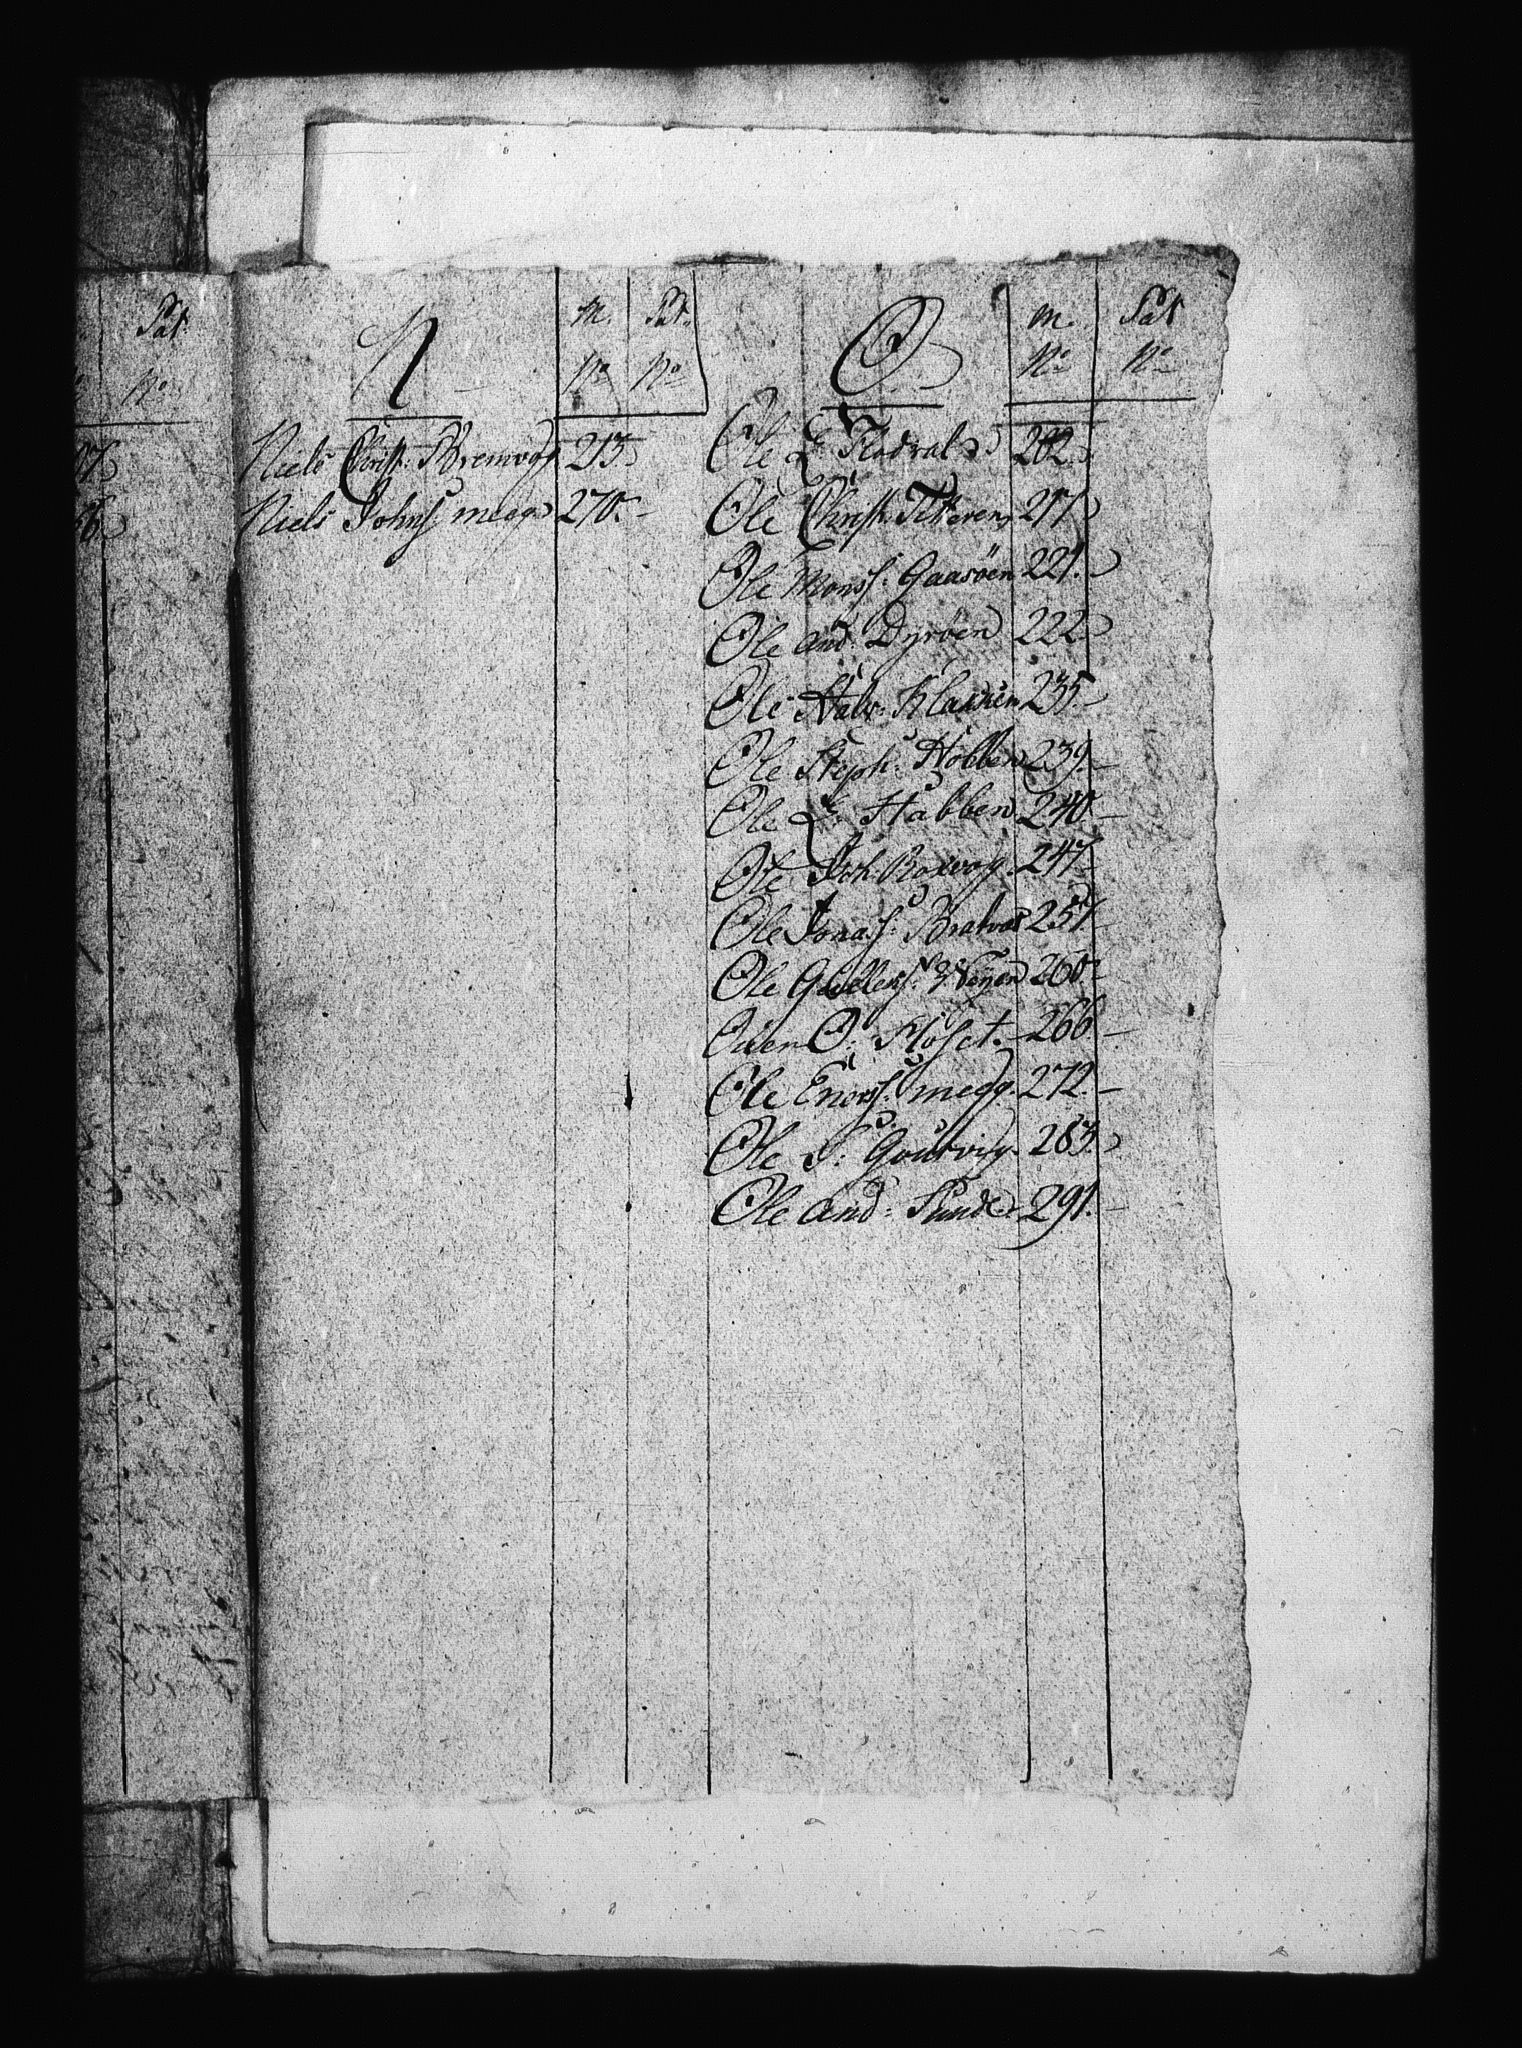 Pat
No
37
56
N
M. Pat.
No No
Niels Christ: Bremvog 213
Niels Johns: megg. 270
O
M. Pat
No No
Ole L: Flodval 202
Ole Christ: Tetteren 217
Ole Monss: Gaasöen 221.
Ole And: Dyröen 222
Ole Halv: Klakken 235.
Ole Steph: Hobben 239.
Ole L: Stabben 240
Ole Joh: Roxvog. 247
Ole Jonass: Bratvær 251
Ole Gullens: Veyen 260.
Oden O: Kloset. 266
Ole Enerss: megg. 272.
Ole S: Gourvig. 283.
Ole And: Sunde 291.